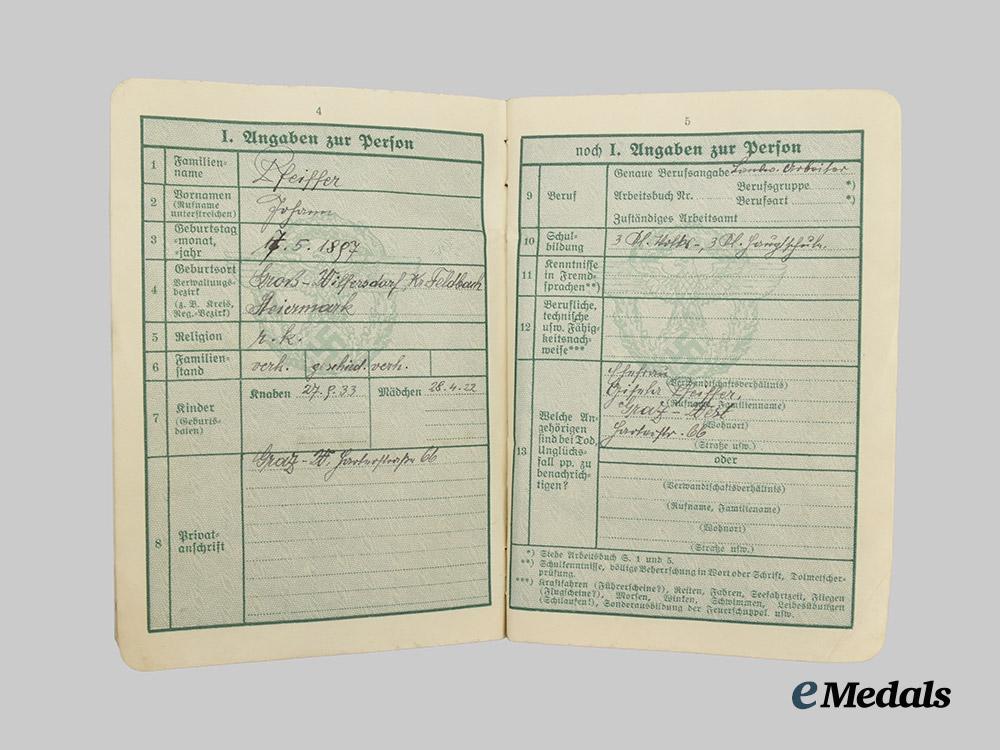 4
I. Angaben zur Person
1 Familien-
name
Pfeiffer
2 Vornamen
(Rufname
unterstreichen)
Johann
3 Geburtstag
-monat,
-jahr
17. 5. 1897
4 Geburtsort
Verwaltungs-
bezirk
(z. B. Kreis,
Reg.-Bezirk)
Groß-Wilfersdorf, Kr. Feldbach
Steiermark
5 Religion
r. k.
6 Familien-
stand
verh. geschied. verh.
7 Kinder
(Geburts-
daten)
Knaben 27.9.33 Mädchen 28.4.22
8 Privat-
anschrift
Graz-W. Harterstraße 66
5
noch I. Angaben zur Person
9 Beruf
Genaue Berufsangabe Landw. Arbeiter
Arbeitsbuch Nr. Berufsgruppe *)
Berufsart *)
Zuständiges Arbeitsamt
10 Schul-
bildung
3 Kl. Volks-, 3 Kl. Hauptschule.
11 Kenntnisse
in Fremd-
sprachen**)
12 Berufliche,
technische
usw. Fähig-
keitsnach-
weise***
13 Welche An-
gehörigen
sind bei Tod,
Unglücks-
fall pp. zu
benachrich-
tigen?
Ehefrau
(Verwandtschaftsverhältnis)
Pfeiffer
(Rufname, Familienname)
Graz-West
(Wohnort)
Harterstr. 66
(Straße usw.)
oder
(Verwandtschaftsverhältnis)
(Rufname, Familienname)
(Wohnort)
(Straße usw.)
*) Siehe Arbeitsbuch S. 1 und 5.
**) Schulkenntnisse, völlige Beherrschung in Wort oder Schrift, Dolmetscher-
prüfung.
***) Kraftfahren (Führerscheine?), Reiten, Fahren, Seefahrtzeit, Fliegen
(Flugscheine?), Morsen, Winken, Schwimmen, Leibesübungen
(Schilaufen!), Sonderausbildung der Feuerschutzpol. usw.
eMedals